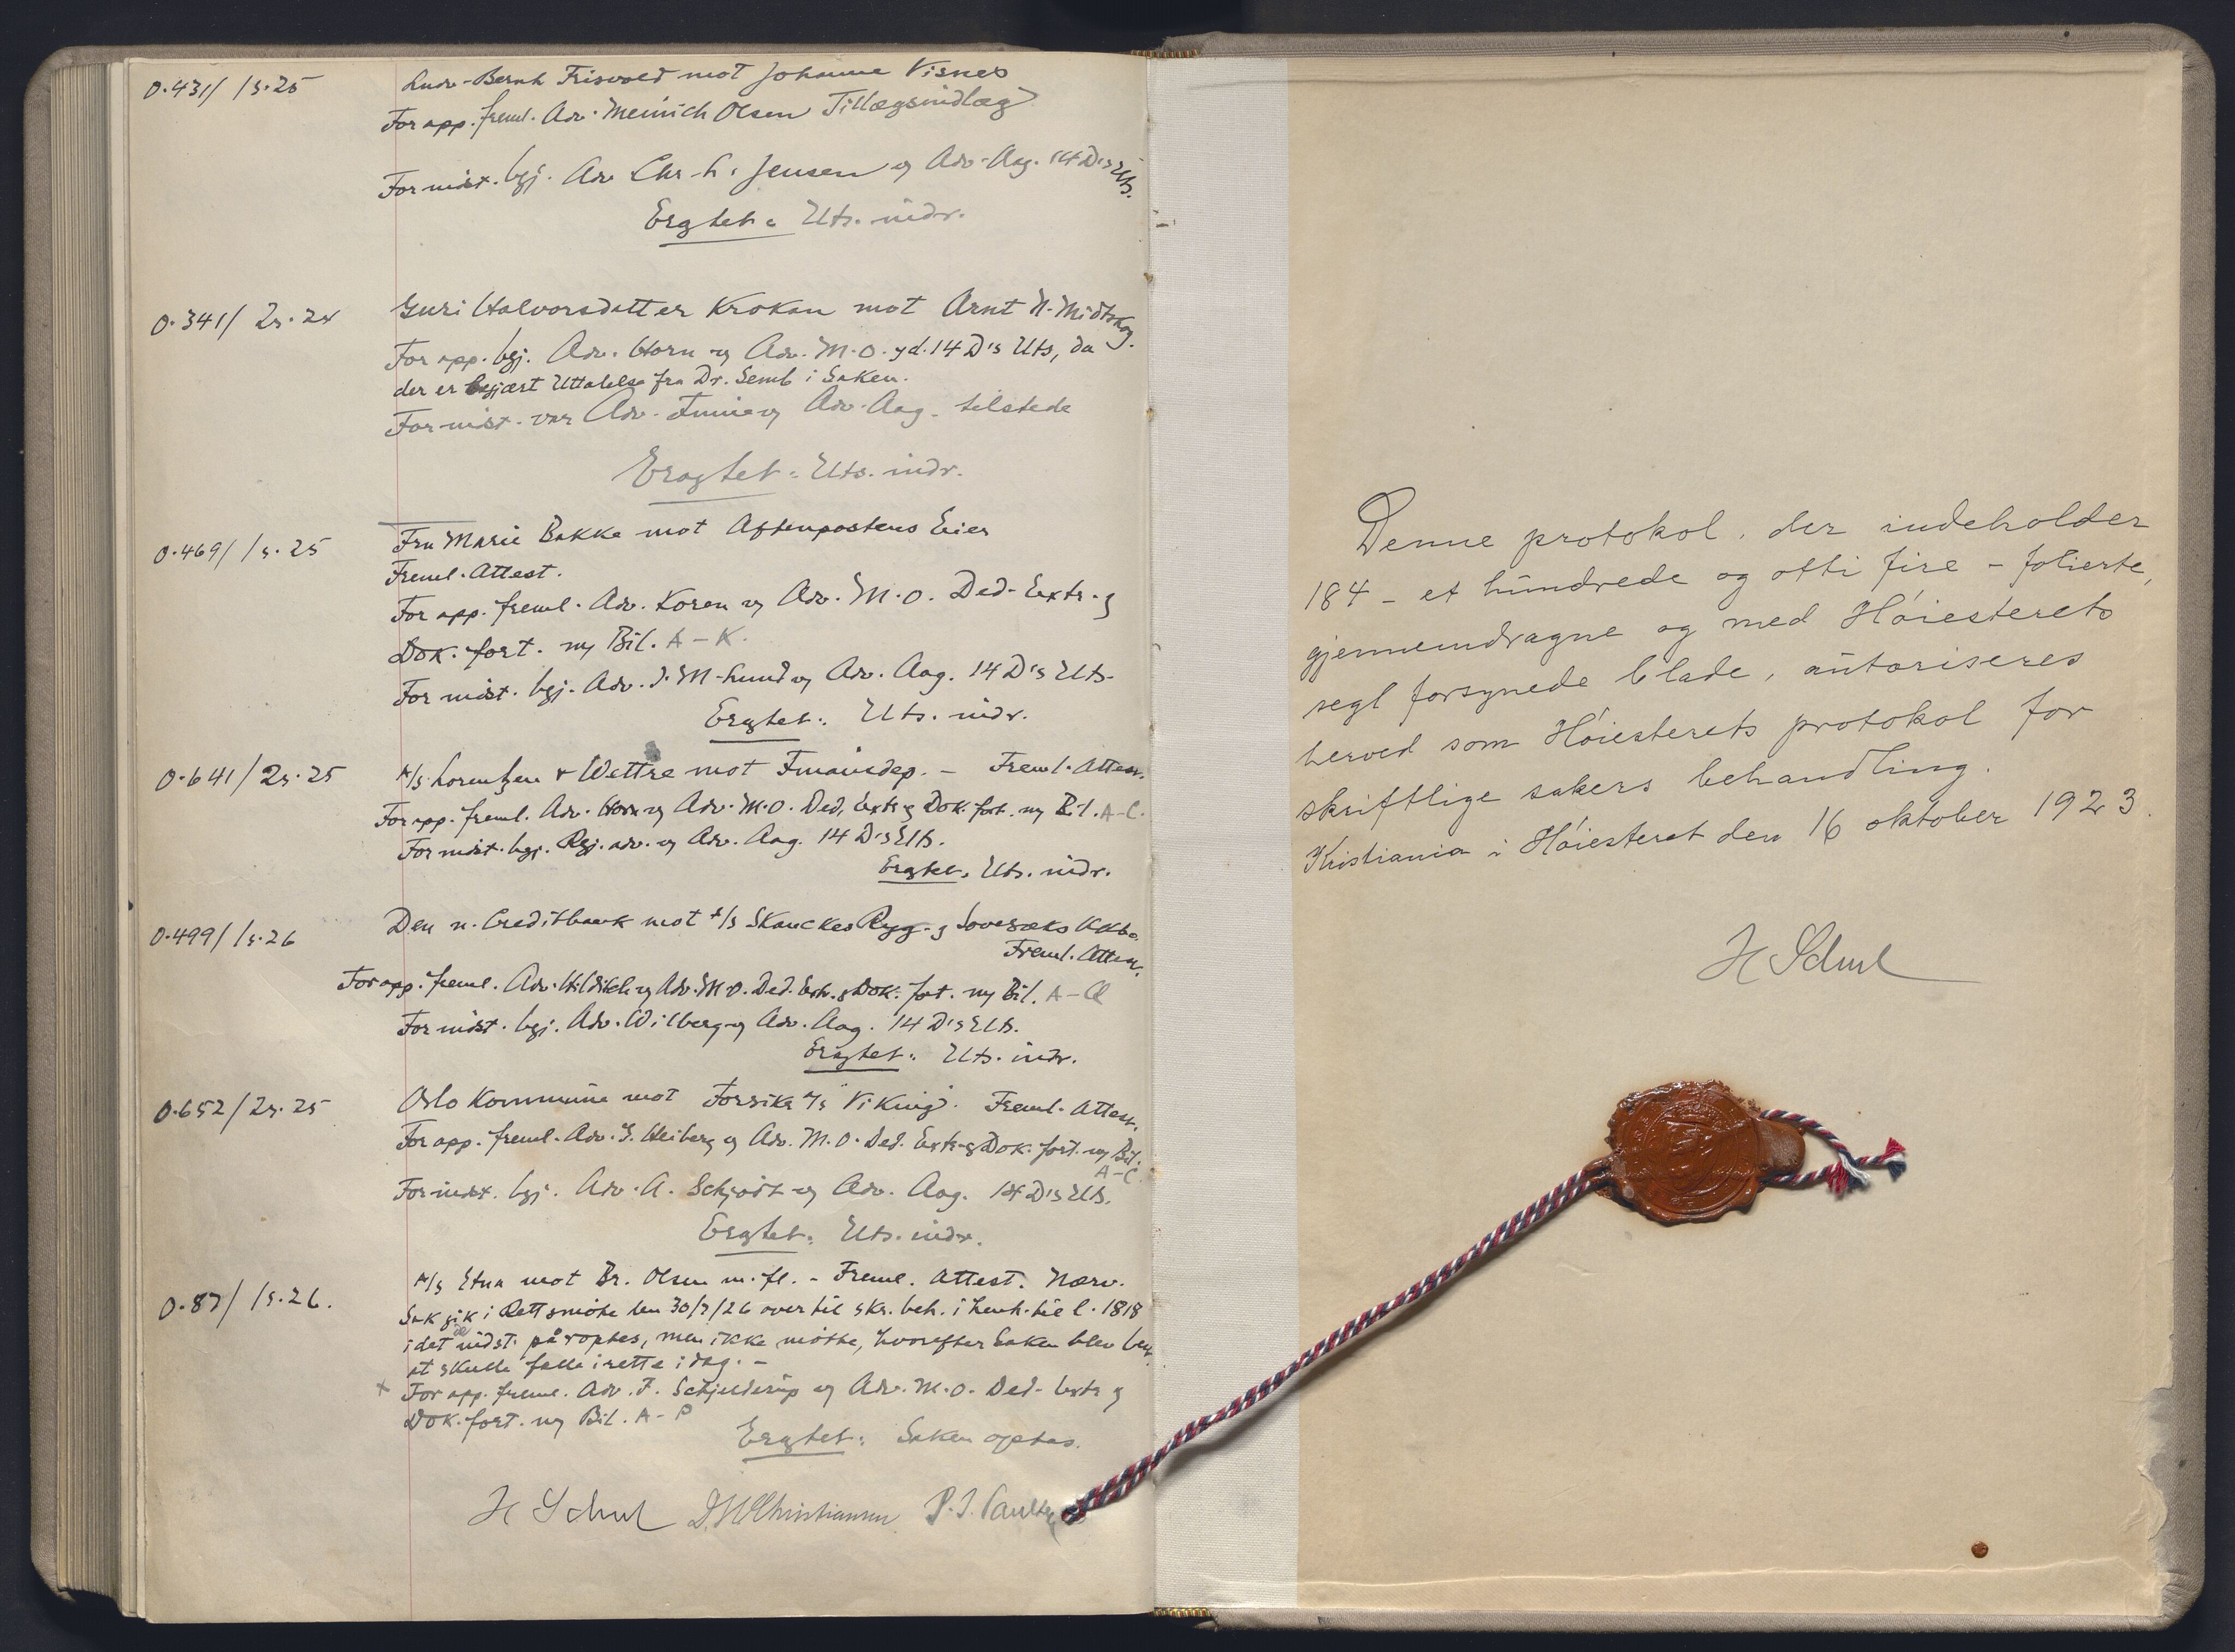 O.431/1s.25
Ludv. Bernh Frisvold mot Johanne Visnes
For app. freml. Adv. Meinich Olsen Tillægsindlæg
For indst. bgj. Adv Chr. L. Jensen og Adv. Aag. 14 D's Uts.
Eragtet: Uts. indr.
O.341/2s.24
Guri Halvorsdatter Krokan mot Arnt H. Midtskog.
For app. bgj. Adv. Horn og Adv. M.O. yd. 14 D's Uts, da
der er begjært Uttalelse fra Dr. Semb i Saken.
For indst. var Adv. og Adv. Aag. tilstede
Eragtet: Uts. indr.
O.469/1s.25
Fru Marie Bakke mot Aftenpostens Eier
Freml. Attest.
For app. freml. Adv. Koren og Adv. M.O. Ded. Extr. og
Dok. fort. og Bil. A – K.
For indst. bgj. Adv. J. M. Lund og Adv. Aag. 14 D's Uts.
Eragtet: Uts. indr.
O.641/2s.25
A/S Lorentzen & Wettre mot Finansdep. – Freml. Attest.
For app. freml. Adv. Horn og Adv. M.O. Ded, Extr. og Dok. fort. og Bil. A-C.
For indst. bgj. Rgj. adv. og Adv. Aag. 14 D's Uts.
Eragtet: Uts. indr.
O.499/1s.26
Den n. Creditbank mot A/S Skanckes Rygg- og Sovesæks
Freml. Attest.
For app. freml. Adv. Hilditch og Adv. M.O. Ded. Extr. og Dok. fort. og Bil. A – Q
For indst. bgj. Adv. Wilberg og Adv. Aag. 14 D's Uts.
Eragtet: Uts. indr.
O.652/2s.25
Oslo Kommune mot Forsikr A/S Viking. Freml. Attest.
For app. freml. Adv. Heiberg og Adv. M.O. Ded. Extr. og Dok. fort. og Bil.
A – C.
For indst. bgj. Adv. A. Schjødt og Adv. Aag. 14 D's Uts.
Eragtet: Uts. indr.
O.87/1s.26.
A/S Etna mot Br. Olsen m. fl. – Freml. Attest. Nærv.
Sak gik i Rettsmøte den 30/3/26 over til skr. beh. i henh. til l. 1818
idet indst. påroptes, men ikke møtte, hvorefter Saken blev
at skulle falle i rette idag. –
+ For app. freml. Adv. F. Schjelderup og Adv. M.O. Ded. Extr og
Dok. fort. og Bil. A – P
Eragtet: Saken optas.
H Scheel D. M. Christiansen P. I. Paulsen
Denne protokol, der indeholder
184 – et hundrede og otti fire – folierte,
gjennemdragne og med Høiesterets
segl forsynede blade, autoriseres
herved som Høiesterets protokol for
skriftlige sakers behandling.
Kristiania i Høiesteret den 16 oktober 1923.
H Scheel